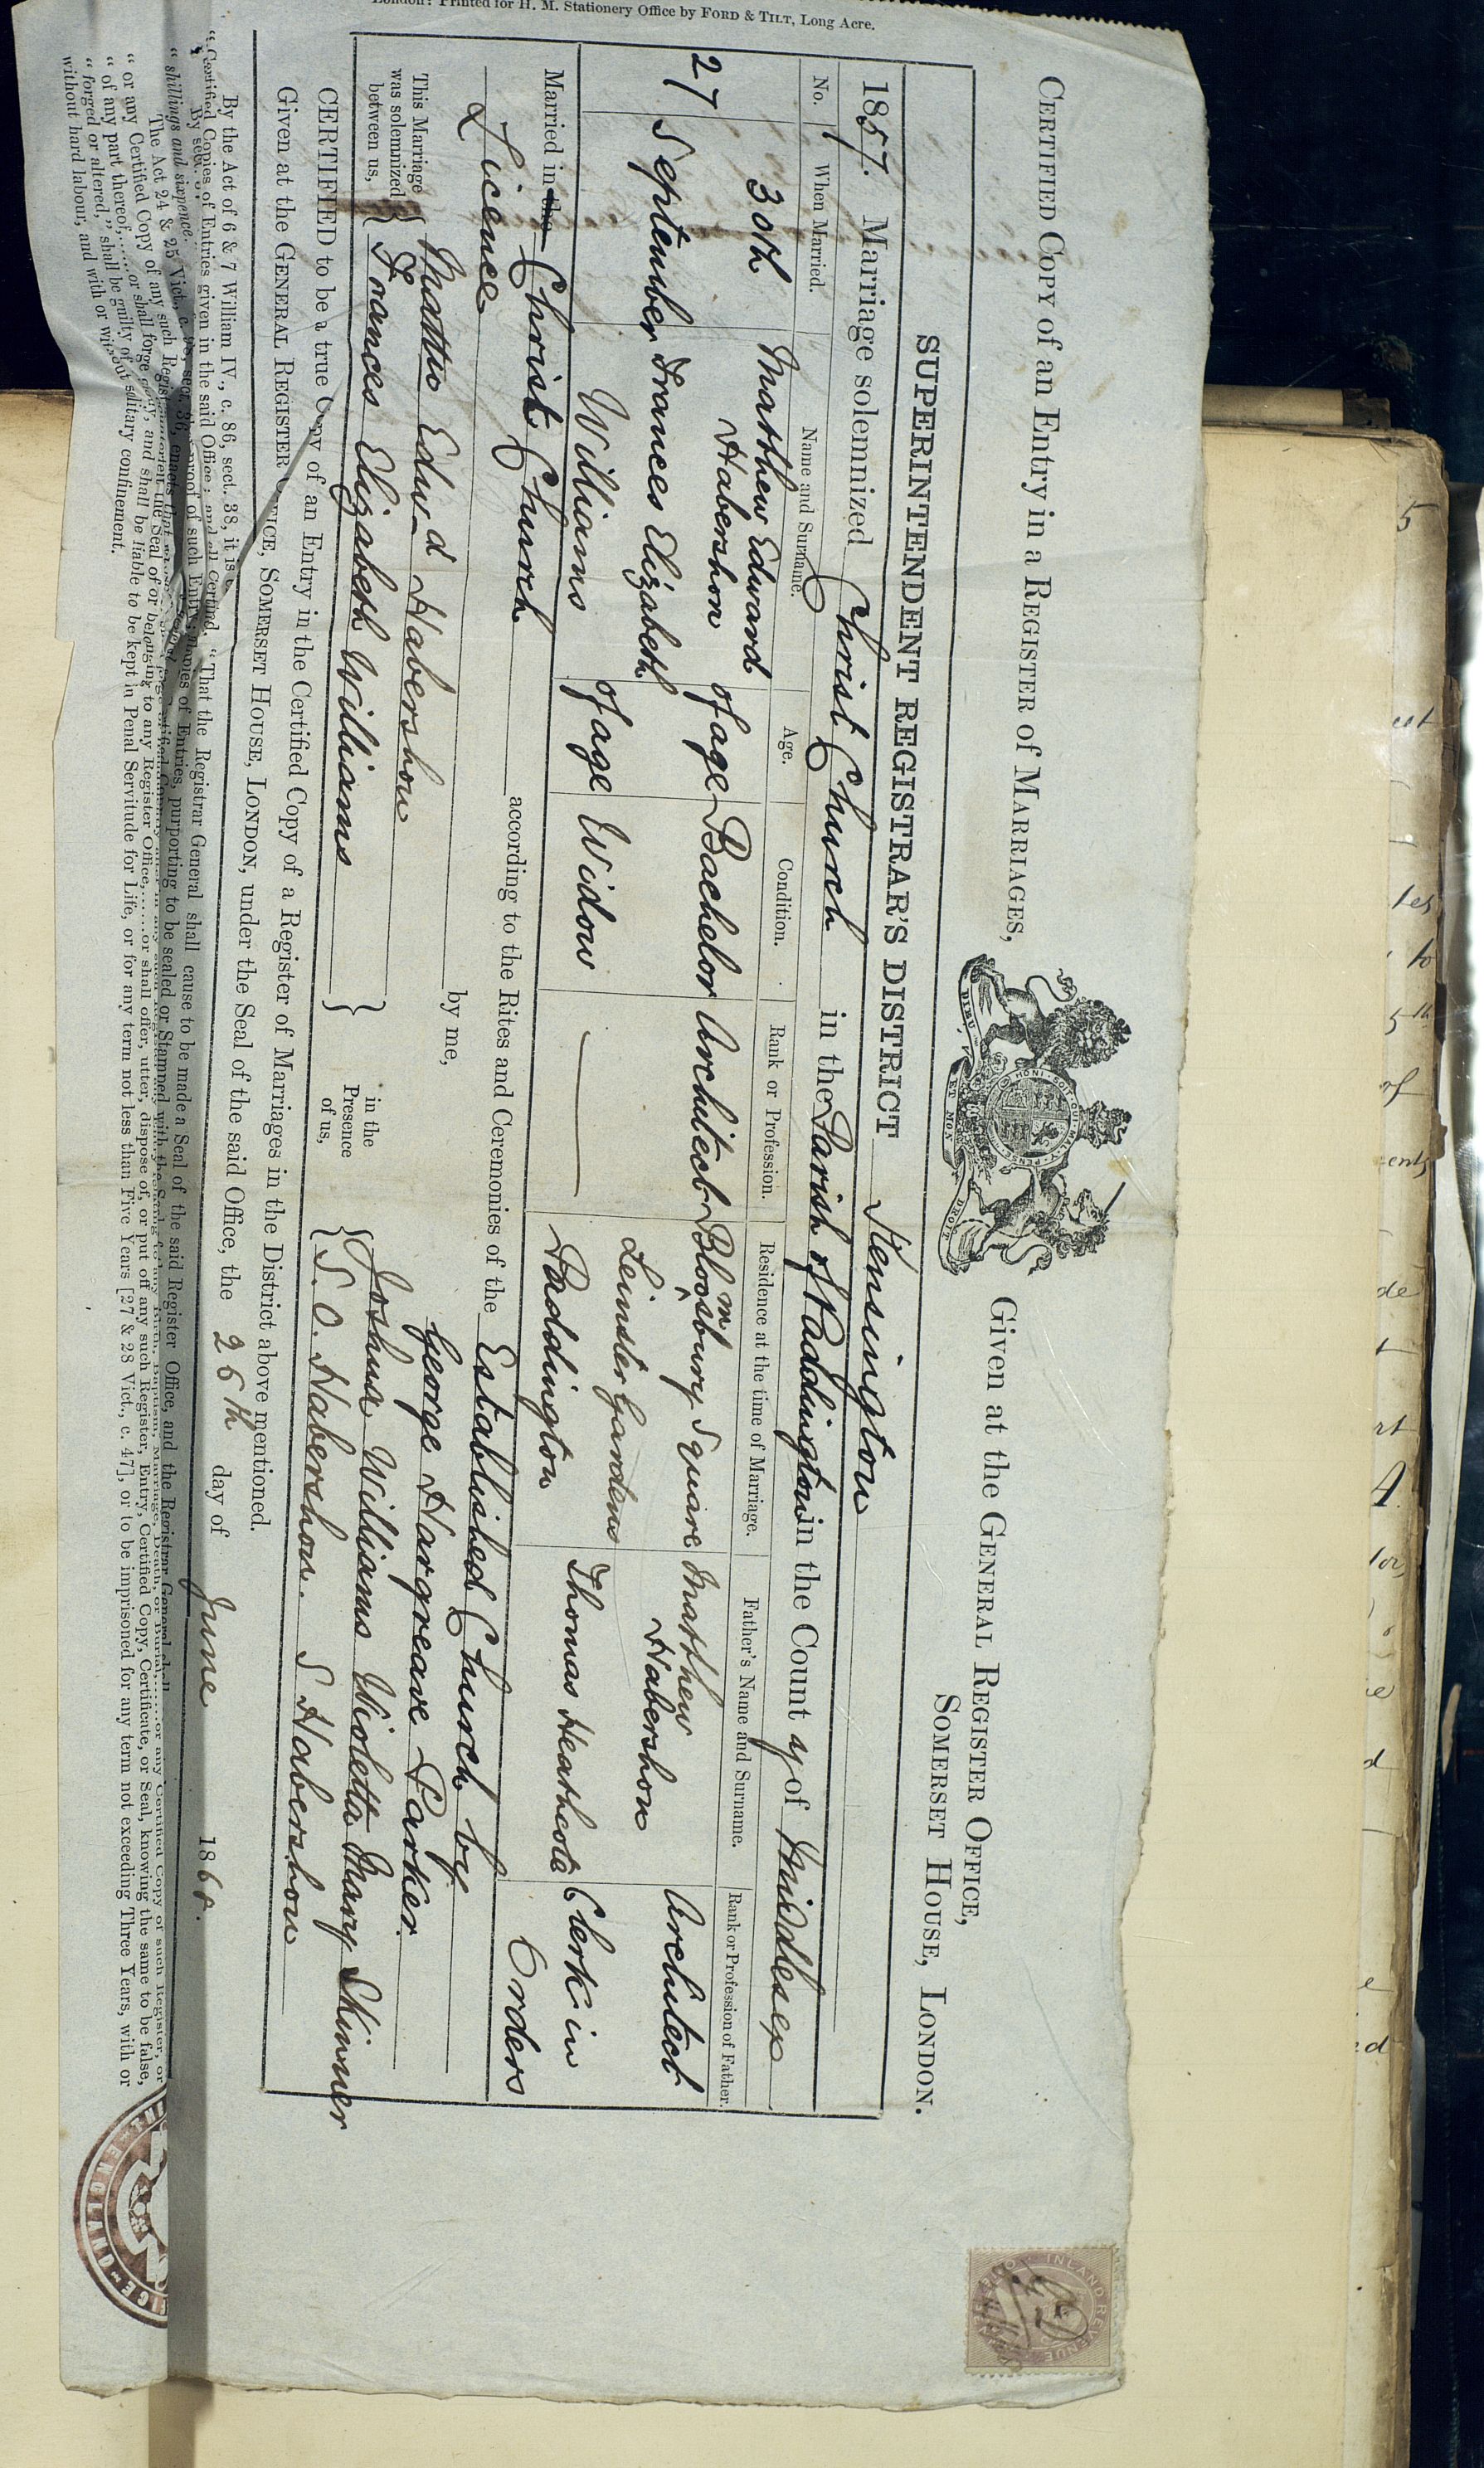 CERTIFIED COPY of an Entry in a REGISTER of MARRIAGES,
Given at the GENERAL REGISTER OFFICE,
SOMERSET HOUSE, LONDON.
DIEU ET MON DROIT
HONI SOIT QUI MAL Y PENSE
INLAND REVENUE
SUPERINTENDENT REGISTRAR'S DISTRICT Kensington
1857. Marriage solemnized Christ Church in the Parish of Paddington in the County of Middlesex
No. When Married. Name and Surname. Age. Condition. Rank or Profession. Residence at the time of Marriage. Father's Name and Surname. Rank or Profession of Father.
27 30th September
Matthew Edward Habershon of age Bachelor Architect Bloomsbury Square Matthew Habershon Architect
Frances Elizabeth Williams of age Widow — Leinster Gardens Paddington Thomas Heathcote Clerk in Orders
Married in the Christ Church according to the Rites and Ceremonies of the Established Church by
Licence by me, George Hargreave Parker.
This Marriage was solemnized between us,
Matthw Edwd Habershon
Frances Elizabeth Williams
in the Presence of us,
Joshua Williams Violetta Mary Skinner
S. O. Habershon. S Habershon
CERTIFIED to be a true Copy of an Entry in the Certified Copy of a Register of Marriages in the District above mentioned.
Given at the GENERAL REGISTER OFFICE, SOMERSET HOUSE, LONDON, under the Seal of the said Office, the 26th day of June 186
By the Act of 6 & 7 William IV., c. 86, sect. 38, it is "That the Registrar General shall cause to be made a Seal of the said Register Office, and the Registrar General shall
"Certified Copies of Entries given in the said Office; and all Certified Copies of Entries, purporting to be sealed or Stamped with the Seal
By sect. proof of such Entry
"shillings and sixpence.
The Act 24 & 25 Vict., c. sect. 36, enacts that
"or any Certified Copy of any such Register the Seal of or belonging to any Register Office,
"of any part thereof,......or shall forge any such Register, Entry, Certified Copy, Certificate, or Seal, knowing the same to be false,
"forged or altered," shall be guilty of and shall be liable to be kept in Penal Servitude for Life, or for any term not less than Five Years [27 & 28 Vict., c. 47], or to be imprisoned for any term not exceeding Three Years, with or
without hard labour, and with or without solitary confinement.
London: Printed for H. M. Stationery Office by FORD & TILT, Long Acre.
ENGLAND